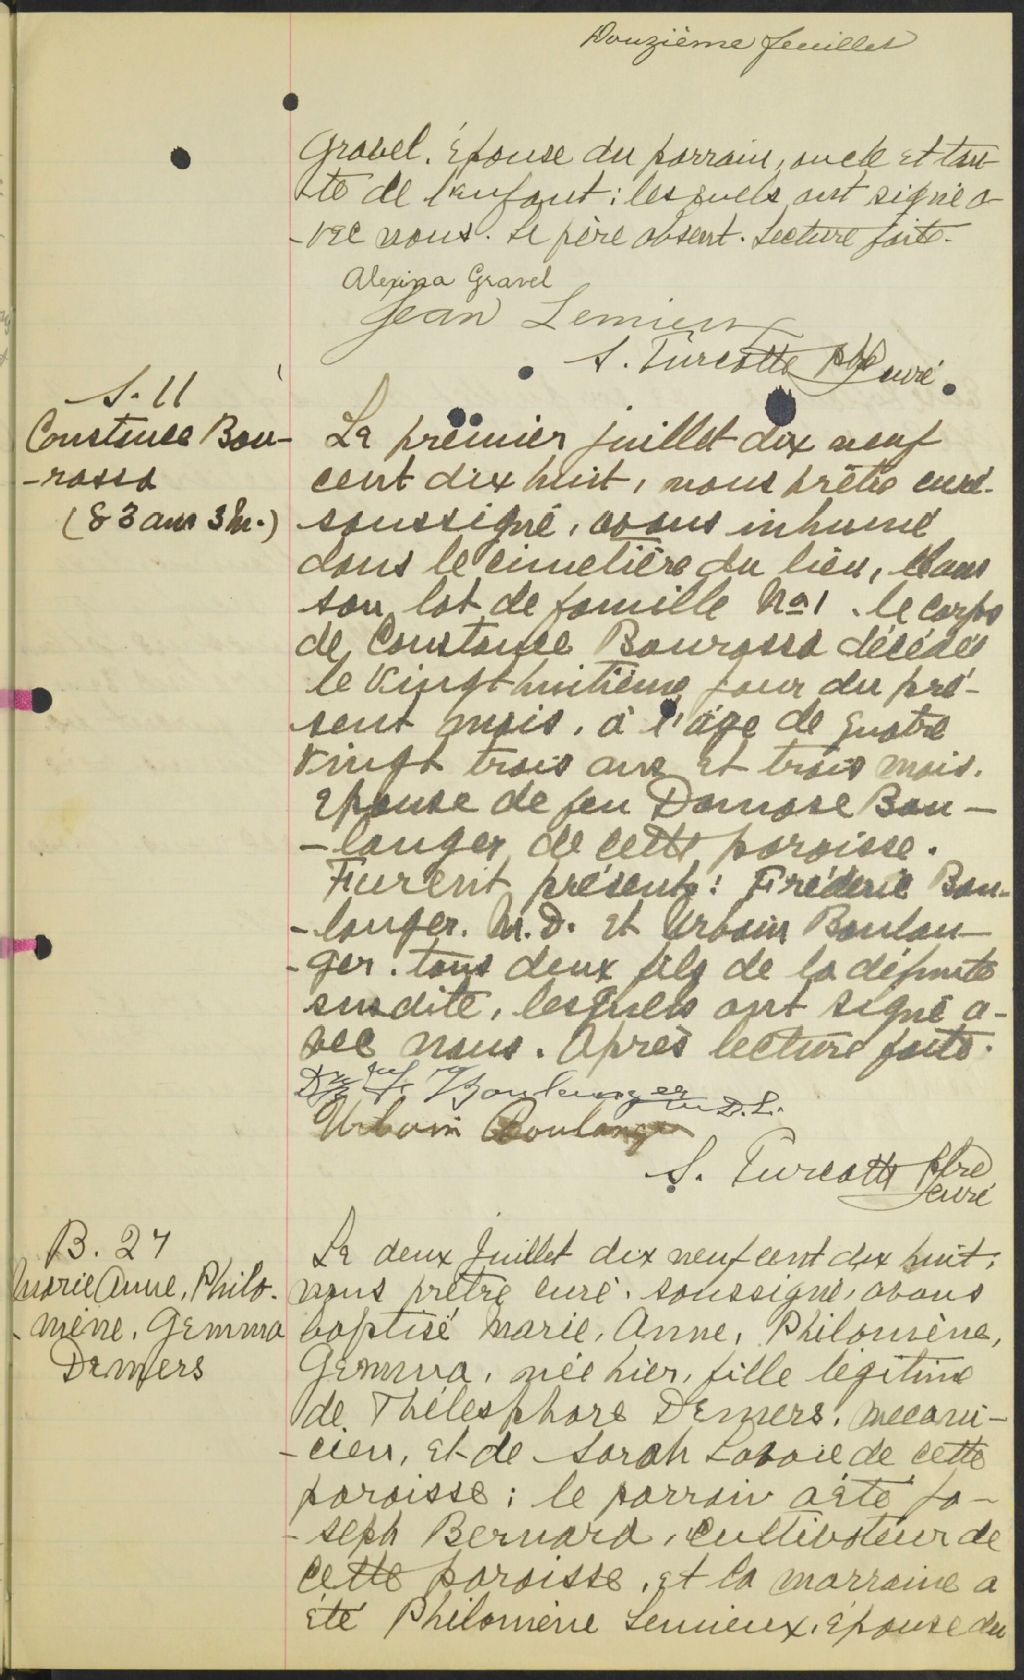 Douzième feuillet
Gravel. Épouse du parrain, oncle et tan-
-te de l'enfant ; lesquels ont signé a-
-vec nous. Le père absent. Lecture faite.
Alexina Gravel
Jean Lemieux
S. Turcotte Ptre
curé.
S. 11
Constance Bou-
-rassa
(83 ans 3 m.)
Le premier juillet dix neuf
cent dix huit, nous prêtre curé
soussigné, avons inhumé
dans le cimetière du lieu, dans
son lot de famille No 1. le corps
de Constance Bourassa décédée
le vingt huitième jour du pré-
sent mois, à l'âge de quatre
vingt trois ans et trois mois.
Epouse de feu Damase Bou-
-langer, de cette paroisse.
Furent présents : Fréderic Bou-
-langer. M.D. et Urbain Boulan-
-ger. tous deux fils de la défunte
susdite, lesquels ont signé a-
vec nous. Après lecture faite.
Boulanger
Urbain Boulanger
S. Turcotte Ptre
curé
B. 27
Marie Anne, Philo-
-mène, Gemma
Demers
Le deux Juillet dix neuf cent dix huit,
nous prêtre curé. soussigné, avons
baptisé Marie, Anne, Philomène,
Gemma, née hier, fille légitime
de Thélesphore Demers, mecani-
-cien, et de Sarah Lavoie de cette
paroisse ; le parrain a été Jo-
-seph Bernard, cultivateur de
cette paroisse, et la marraine a
été Philomène Lemieux, épouse du